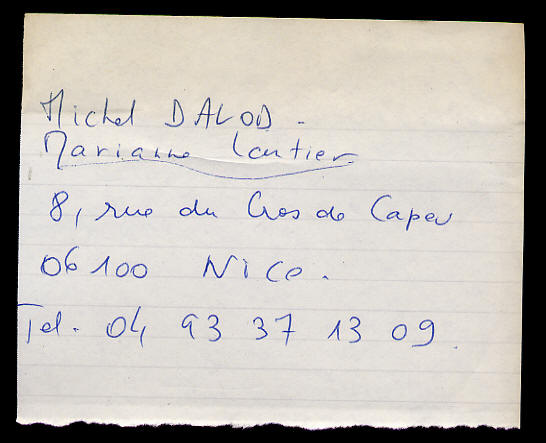 Michel DALOD.
Marianne Lautier
8, rue du Cros de Capeu
06100 Nice.
Tel. 04 93 37 13 09.